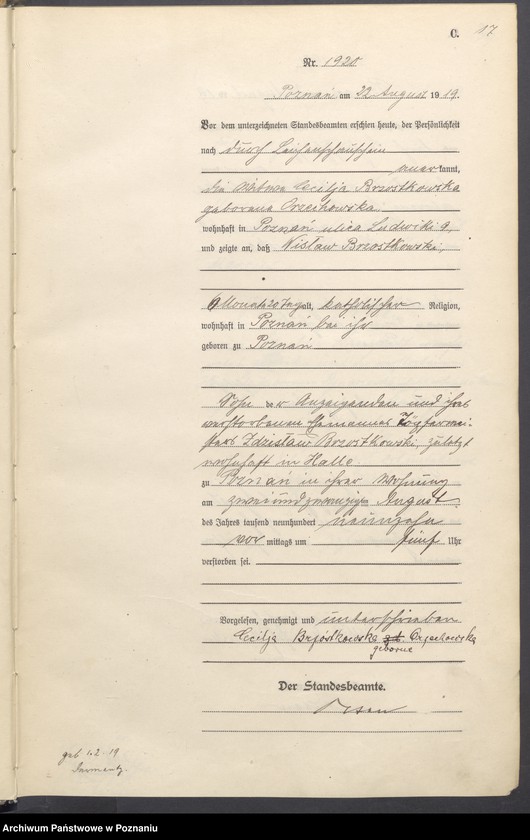 C. 17
Nr. 1920
Poznań am 22 August 1919.
Vor dem unterzeichneten Standesbeamten erschien heute, der Persönlichkeit
nach durch Leichenschauschein
anerkannt,
die Witwe Cecilja Brzostkowska
geborene Orzechowska
wohnhaft in Poznań ulica Ludwiki 9,
und zeigte an, daß Wisław Brzostkowski,
6 Monate 20 Tage alt, katholischer Religion,
wohnhaft in Poznań bei ihr
geboren zu Poznań
Sohn der Anzeigenden und ihres
verstorbenen Ehemannes Töpfermei-
sters Zdzisław Brzostkowski, zuletzt
wohnhaft in Halle.
zu Poznań in ihrer Wohnung
am zweiundzwanzigsten August
des Jahres tausend neunhundert neunzehn
vor mittags um fünf Uhr
verstorben sei.
Vorgelesen, genehmigt und unterschrieben
Cecilja Brzostkowska Orzechowska
geborne
Der Standesbeamte.
geb 1.2.19
Archiwum Państwowe w Poznaniu